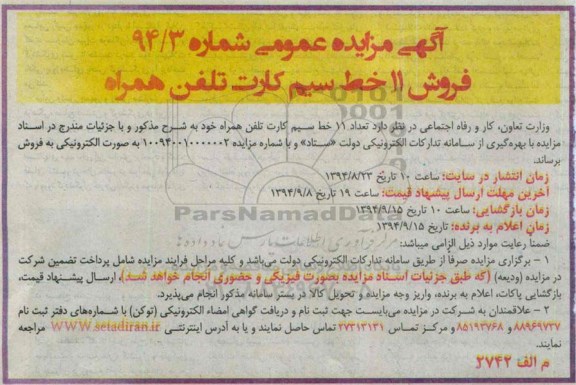 آگهی مزایده عمومی شماره ۹۴/۳
فروش ۱۱ خط سیم کارت تلفن همراه
وزارت تعاون، کار و رفاه اجتماعی در نظر دارد تعداد ۱۱ خط سیم کارت تلفن همراه خود به شرح مذکور و با جزئیات مندرج در اسناد
مزایده با بهره‌گیری از سامانه تدارکات الکترونیکی دولت «ستاد» و با شماره مزایده ۱۰۰۹۴۰۰۱۰۰۰۰۰۰۲ به صورت الکترونیکی به فروش
برساند.
زمان انتشار در سایت: ساعت ۱۰ تاریخ ۱۳۹۴/۸/۲۳
آخرین مهلت ارسال پیشنهاد قیمت: ساعت ۱۹ تاریخ ۱۳۹۴/۹/۸
زمان بازگشایی: ساعت ۱۰ تاریخ ۱۳۹۴/۹/۱۵
زمان اعلام به برنده: تاریخ ۱۳۹۴/۹/۱۵
ParsNamadData
ضمنا رعایت موارد ذیل الزامی میباشد:
۱ – برگزاری مزایده صرفاً از طریق سامانه تدارکات الکترونیکی دولت می‌باشد و کلیه مراحل فرایند مزایده شامل پرداخت تضمین شرکت
در مزایده (ودیعه) (که طبق جزئیات اسناد مزایده بصورت فیزیکی و حضوری انجام خواهد شد.)، ارسال پیشنهاد قیمت،
بازگشایی پاکات، اعلام به برنده، واریز وجه مزایده و تحویل کالا در بستر سامانه مذکور انجام می‌پذیرد.
۲ – علاقمندان به شرکت در مزایده می‌بایست جهت ثبت نام و دریافت گواهی امضاء الکترونیکی (توکن) با شماره‌های دفتر ثبت نام
۸۸۹۶۹۷۳۷ و ۸۵۱۹۳۷۶۸ و مرکز تماس ۲۷۳۱۳۱۳۱ تماس حاصل نمایند و یا به آدرس اینترنتی www.setadiran.ir مراجعه
نمایند.
م الف ۲۷۴۲